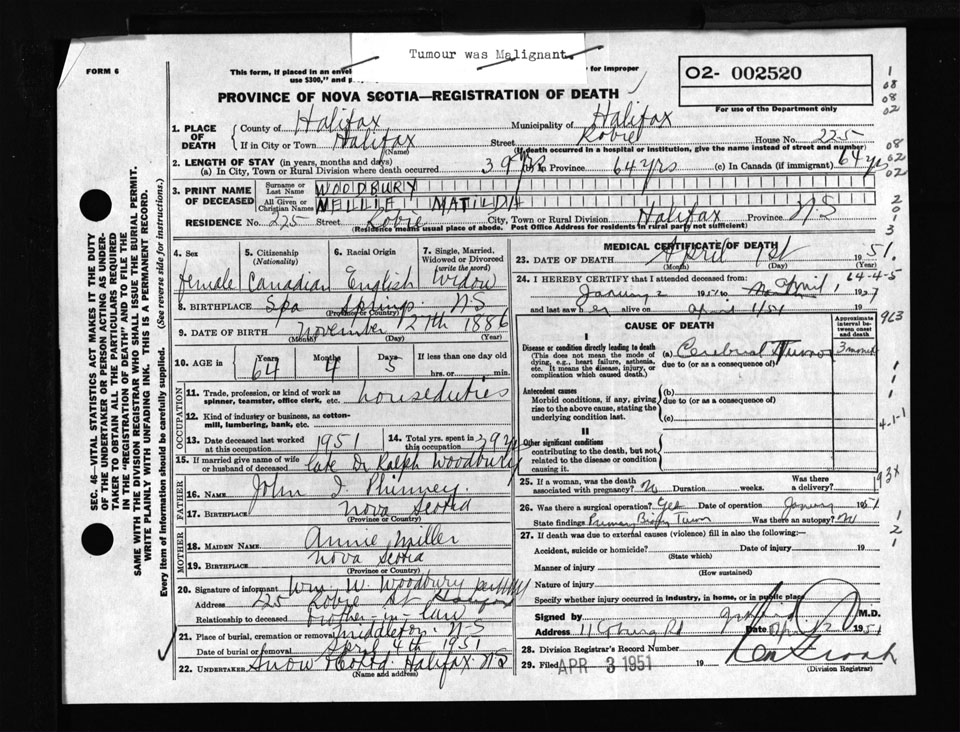 Tumour was Malignant.
FORM 6
This form, if placed in an envel
for improper
use $300," and p
O2- 002520
For use of the Department only
PROVINCE OF NOVA SCOTIA—REGISTRATION OF DEATH
1. PLACE OF DEATH
County of Halifax Municipality of Halifax
If in City or Town Halifax Street Robie House No. 225
(Name) (If death occurred in a hospital or institution, give the name instead of street and number)
2. LENGTH OF STAY (in years, months and days)
(a) In City, Town or Rural Division where death occurred 39 yrs (b) In Province 64 yrs (c) In Canada (if immigrant) 64 yrs
3. PRINT NAME OF DECEASED
Surname or Last Name WOODBURY
All Given or Christian Names NELLIE MATILDA
RESIDENCE No. 225 Street Robie City, Town or Rural Division Halifax Province N.S
(Residence means usual place of abode. Post Office Address for residents in rural parts not sufficient)
4. Sex
Female
5. Citizenship (Nationality)
Canadian
6. Racial Origin
English
7. Single, Married, Widowed or Divorced (write the word)
Widow
8. BIRTHPLACE Spa Springs. N.S
(Province or Country)
9. DATE OF BIRTH November 27th 1886
(Month) (Day) (Year)
10. AGE in
Years 64
Months 4
Days 5
If less than one day old
hrs. or min.
OCCUPATION
11. Trade, profession, or kind of work as spinner, teamster, office clerk, etc. houseduties
12. Kind of industry or business, as cotton-mill, lumbering, bank, etc.
13. Date deceased last worked at this occupation 1951
14. Total yrs. spent in this occupation 29 yrs
15. If married give name of wife or husband of deceased late Dr Ralph Woodbury
FATHER
16. NAME John I. Phinney
17. BIRTHPLACE Nova Scotia
(Province or Country)
MOTHER
18. MAIDEN NAME Annie Miller
19. BIRTHPLACE Nova Scotia
(Province or Country)
20. Signature of informant Wm. W. Woodbury per
Address 225 Robie St Halifax
Relationship to deceased brother in law
21. Place of burial, cremation or removal Middleton, N-S
Date of burial or removal April 4th 1951
22. UNDERTAKER Snow & Co Ltd. Halifax NS
(Name and address)
MEDICAL CERTIFICATE OF DEATH
23. DATE OF DEATH April 1st 1951.
(Month) (Day)
24. I HEREBY CERTIFY that I attended deceased from:
January 2 1951 to April 1, 1951
and last saw her alive on April 1/51
CAUSE OF DEATH
Approximate interval between onset and death
I
Disease or condition directly leading to death
(This does not mean the mode of dying, e.g., heart failure, asthenia, etc. It means the disease, injury, or complication which caused death.)
(a) Cerebral Tumor 3 months
due to (or as a consequence of)
Antecedent causes
Morbid conditions, if any, giving rise to the above cause, stating the underlying condition last.
(b)
due to (or as a consequence of)
(c)
II
Other significant conditions
contributing to the death, but not related to the disease or condition causing it.
25. If a woman, was the death associated with pregnancy? No Duration weeks. Was there a delivery?
26. Was there a surgical operation? Yes Date of operation January 1951
State findings Primary Biopsy Tumor Was there an autopsy? No
27. If death was due to external causes (violence) fill in also the following:—
Accident, suicide or homicide? Date of injury 19
(State which)
Manner of injury
(How sustained)
Nature of injury
Specify whether injury occurred in industry, in home, or in public place
Signed by M.D.
Address 11 Coburg Rd Date April 2 1951
28. Division Registrar's Record Number
29. Filed APR 3 1951 19
(Division Registrar)
SEC. 46—VITAL STATISTICS ACT MAKES IT THE DUTY
OF THE UNDERTAKER OR PERSON ACTING AS UNDER-
TAKER TO OBTAIN ALL THE PARTICULARS REQUIRED
IN THE "REGISTRATION OF DEATH" AND TO FILE THE
SAME WITH THE DIVISION REGISTRAR WHO SHALL ISSUE THE BURIAL PERMIT.
WRITE PLAINLY WITH UNFADING INK. THIS IS A PERMANENT RECORD.
Every item of Information should be carefully supplied. (See reverse side for instructions.)
1
08
08
02
08
02
02
2
0
1
3
64-4-5
923
1
1
1
4-1-1
193X
1
2
1